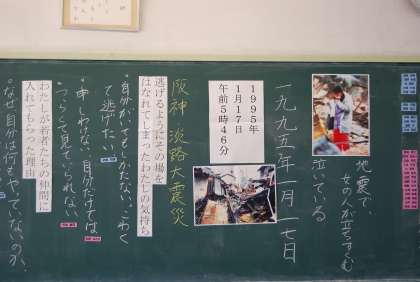 地震で、
女の人が立ちすくむ
泣いている。
一九九五年一月一七日
1995年
1月17日
午前5時46分
阪神 淡路大震災
逃げるようにその場を
はなれてしまったわたしの気持ち
て逃げたい
申しわけない、自分だけでは
つらくて見ていられない
わたしが若者たちの仲間に
入れてもらった理由
なぜ自分は何もやっていないのか、